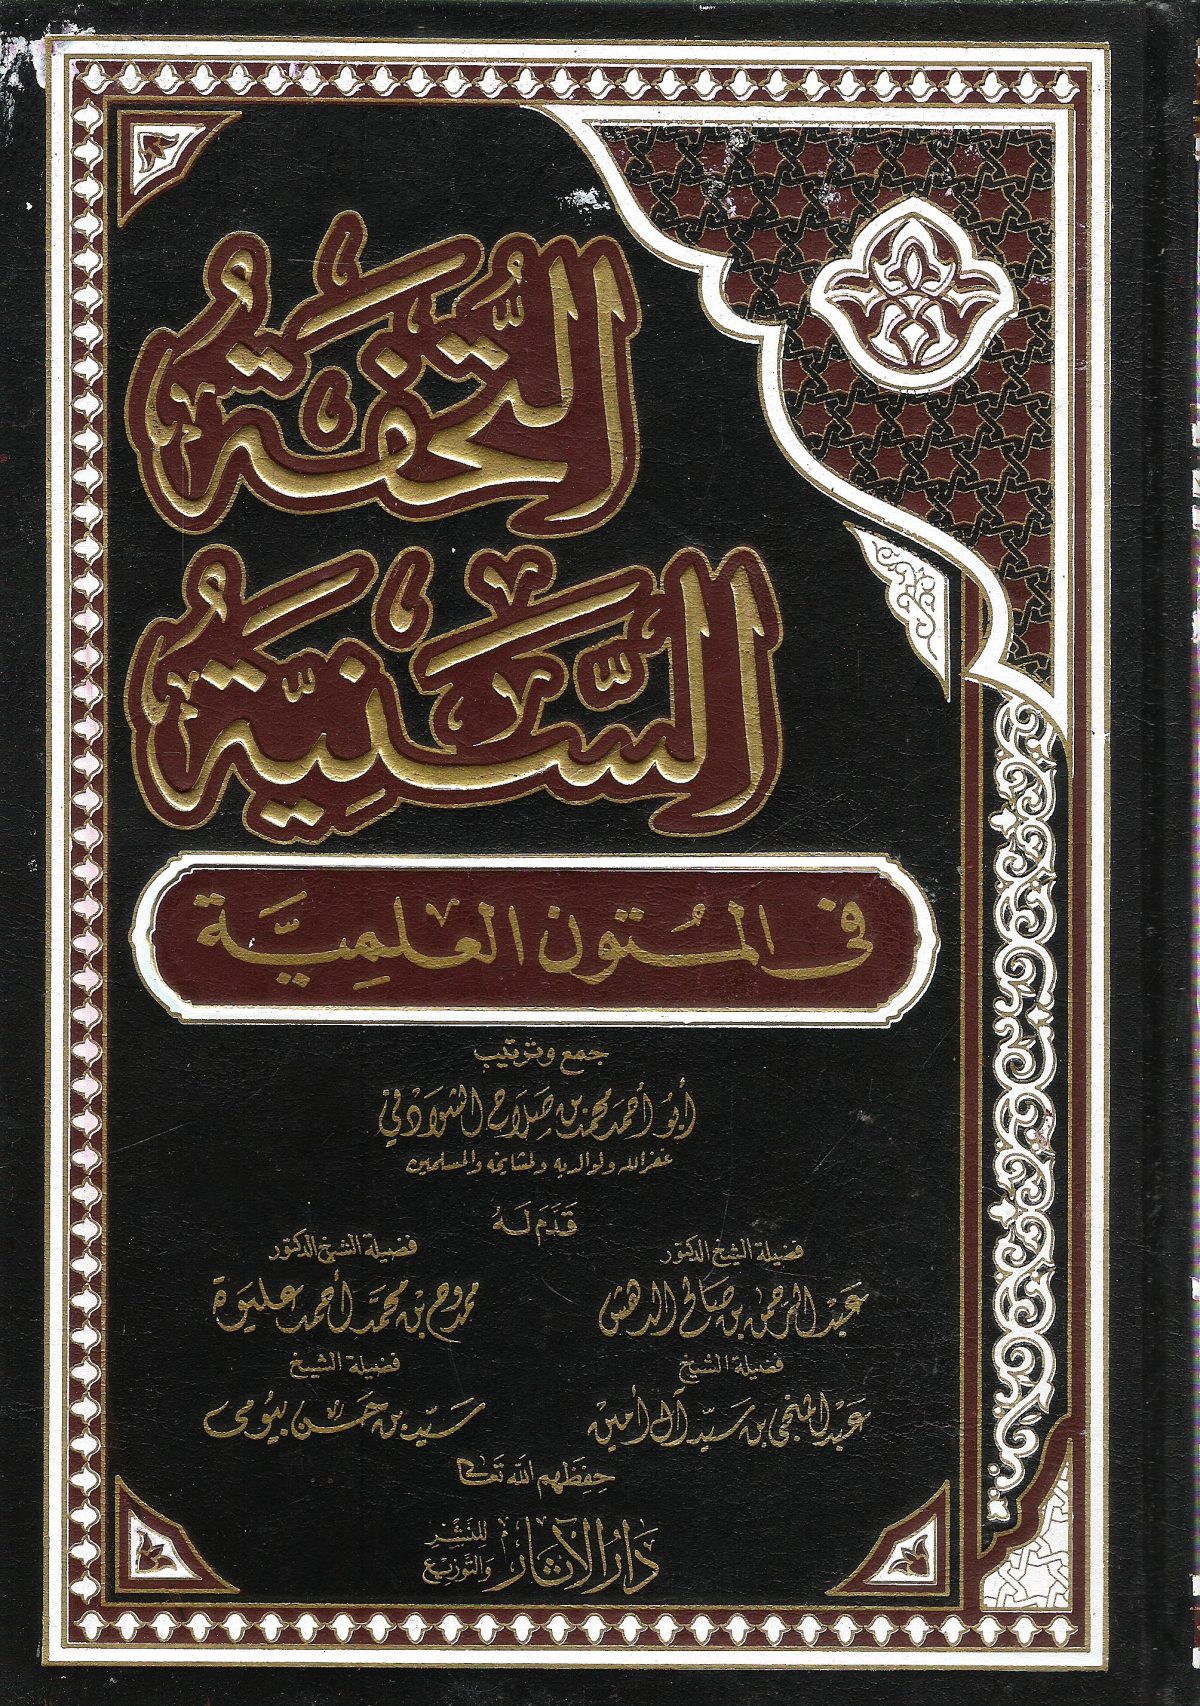 التُّحَفَةُ
السَّنِيَّةُ
فى المُتون العلمِيَّة
جمع وترتيب
أبو أحمد محمد بن صلاح الشوادفي
غفر الله ولوالديه ولمشايخه والمسلمين
قَدَّمَ لَهُ
فضيلة الشيخ الدكتور
فضيلة الشيخ الدكتور
عبد الرحمن بن صالح الدهش
ممدوح بن محمد أحمد عليوة
فضيلة الشيخ
فضيلة الشيخ
عبد المنجى بن سيد آل أمين
سيد بن حسن بيومى
حفظهم الله تعالى
دار الآثار للنشر والتوزيع